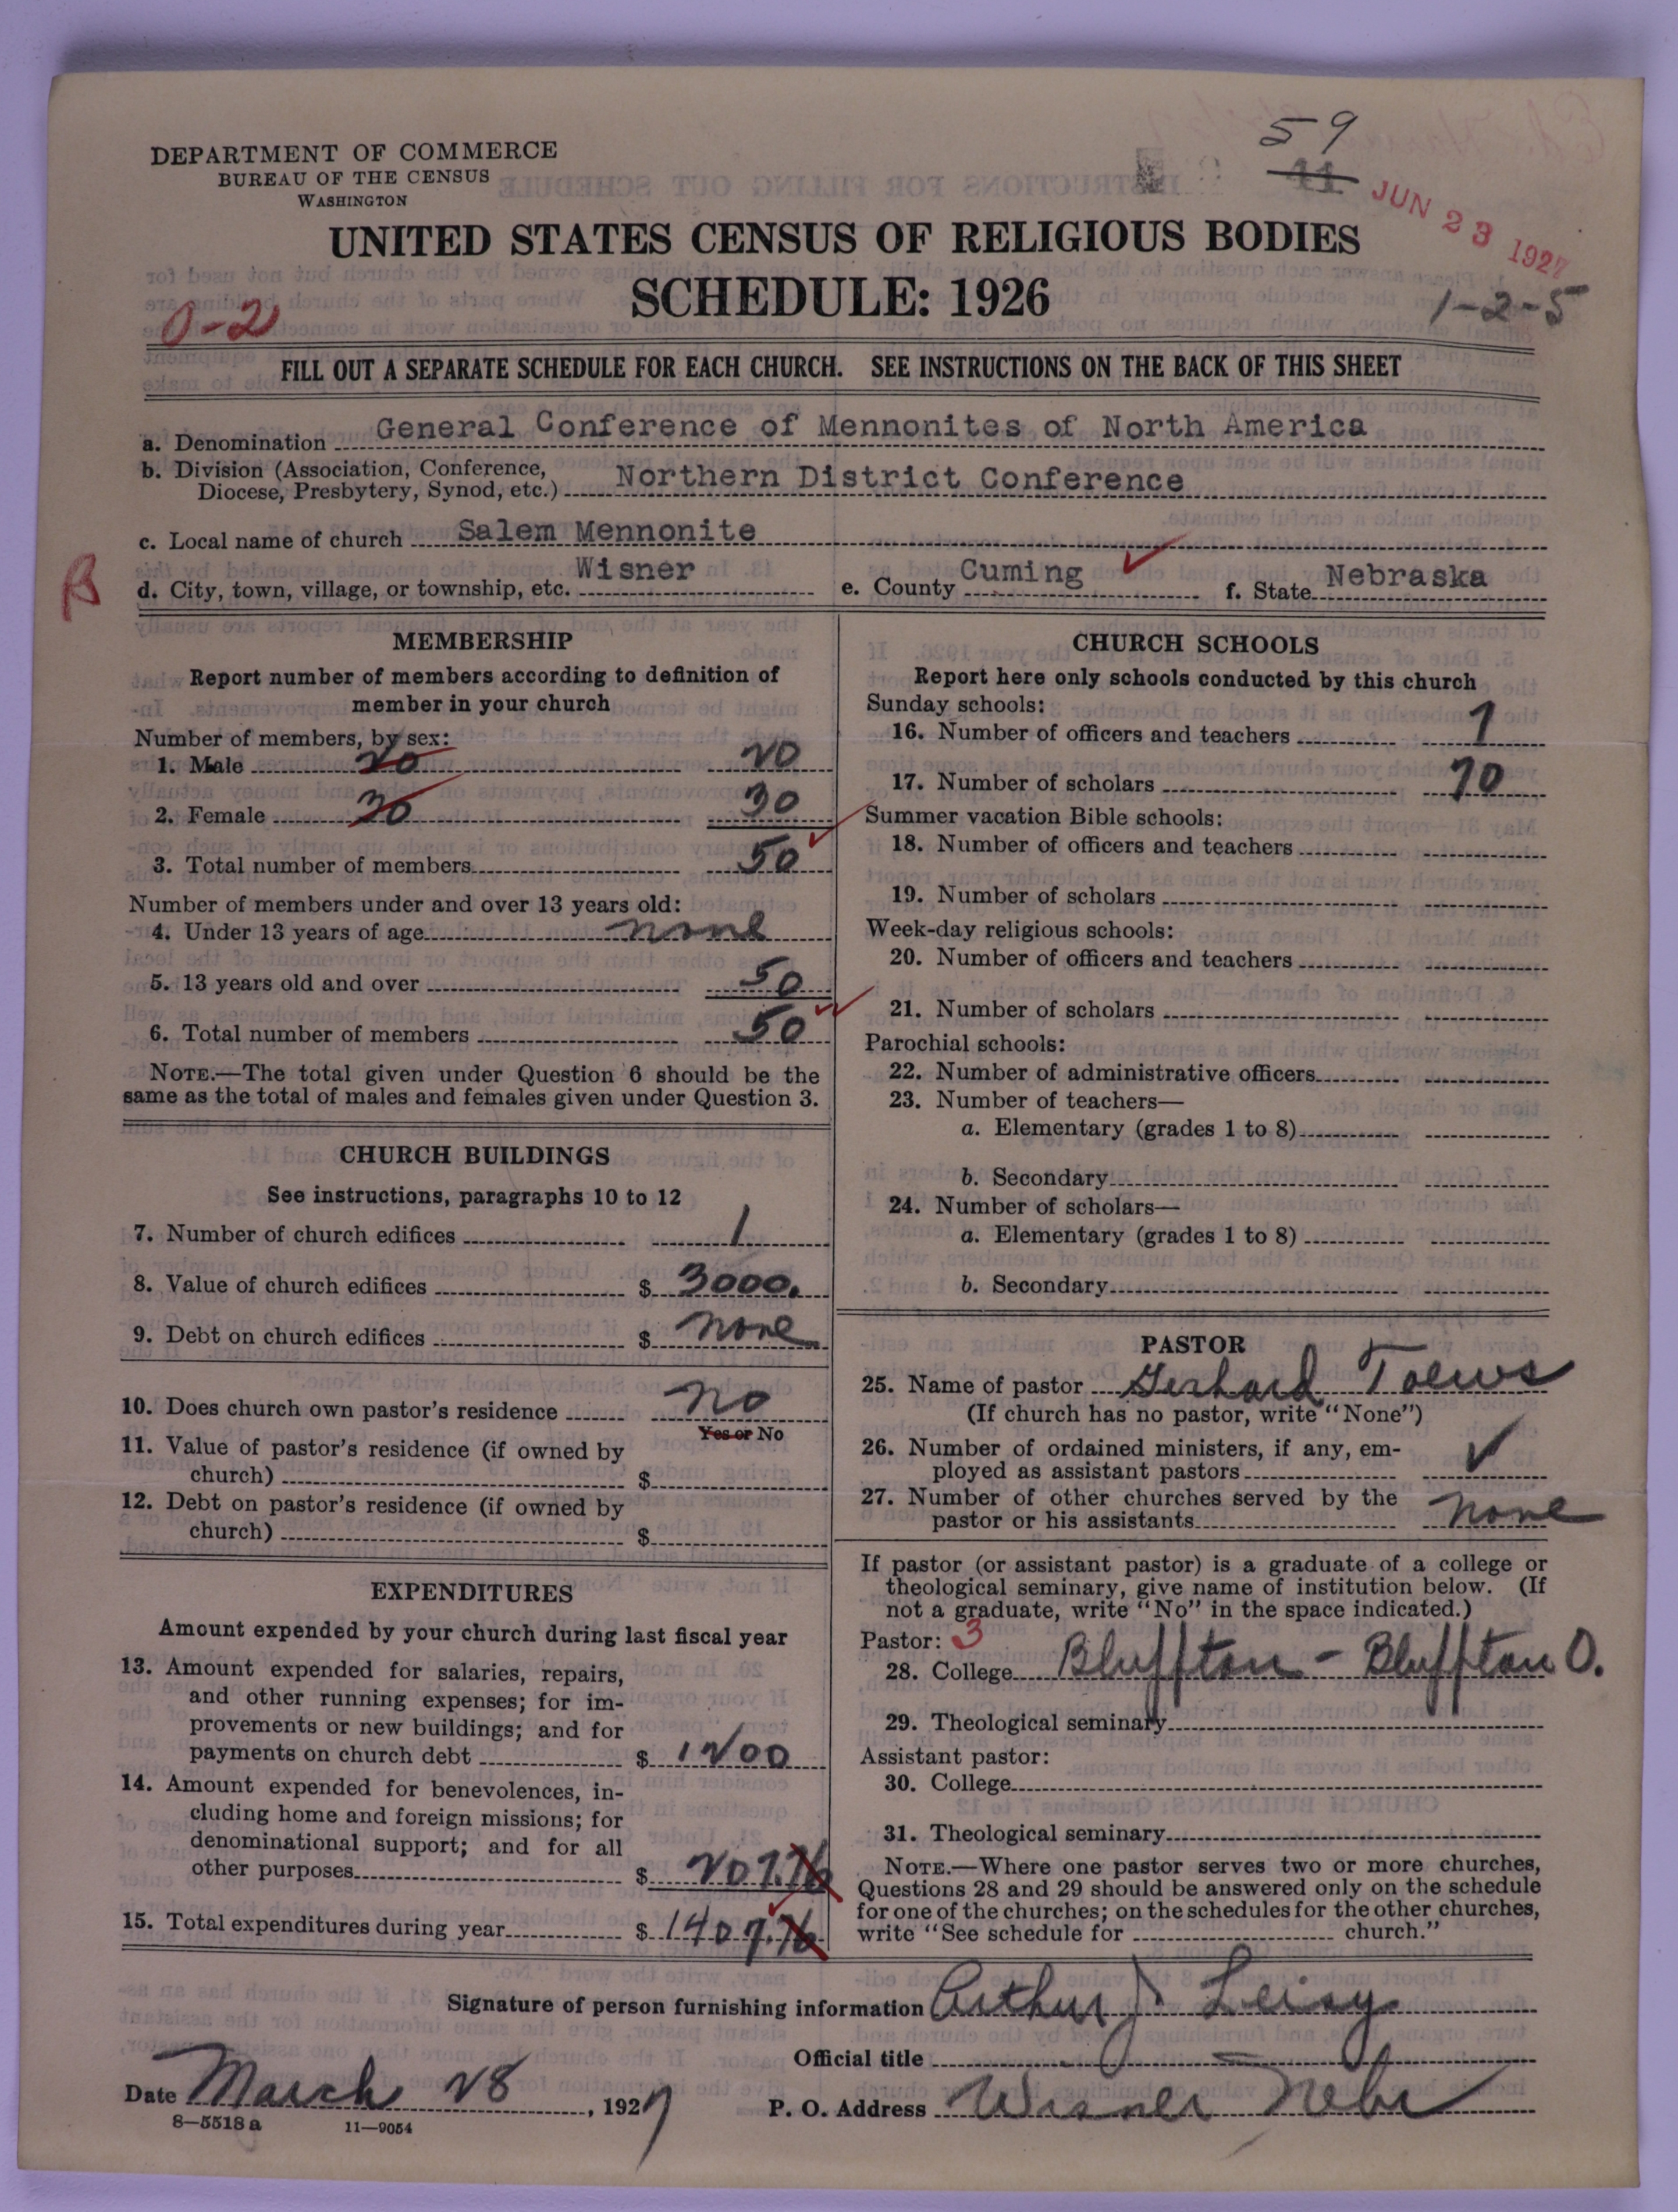 59
11
JUN 23 1927
DEPARTMENT OF COMMERCE
BUREAU OF THE CENSUS
WASHINGTON
UNITED STATES CENSUS OF RELIGIOUS BODIES
SCHEDULE: 1926
0-2
1-2-5
FILL OUT A SEPARATE SCHEDULE FOR EACH CHURCH. SEE INSTRUCTIONS ON THE BACK OF THIS SHEET
a. Denomination General Conference of Mennonites of North America
b. Division (Association, Conference,
Diocese, Presbytery, Synod, etc.) Northern District Conference
c. Local name of church Salem Mennonite
B
d. City, town, village, or township, etc. Wisner e. County Cuming f. State Nebraska
MEMBERSHIP
Report number of members according to definition of
member in your church
Number of members, by sex:
1. Male 20 20
2. Female 30 30
3. Total number of members 50
Number of members under and over 13 years old:
4. Under 13 years of age none
5. 13 years old and over 50
6. Total number of members 50
NOTE.—The total given under Question 6 should be the
same as the total of males and females given under Question 3.
CHURCH BUILDINGS
See instructions, paragraphs 10 to 12
7. Number of church edifices 1
8. Value of church edifices $ 3000.
9. Debt on church edifices $ none
10. Does church own pastor's residence no
Yes or No
11. Value of pastor's residence (if owned by
church) $
12. Debt on pastor's residence (if owned by
church) $
EXPENDITURES
Amount expended by your church during last fiscal year
13. Amount expended for salaries, repairs,
and other running expenses; for im-
provements or new buildings; and for
payments on church debt $ 1200
14. Amount expended for benevolences, in-
cluding home and foreign missions; for
denominational support; and for all
other purposes $ 207.76
15. Total expenditures during year $ 1407.76
CHURCH SCHOOLS
Report here only schools conducted by this church
Sunday schools:
16. Number of officers and teachers 7
17. Number of scholars 70
Summer vacation Bible schools:
18. Number of officers and teachers
19. Number of scholars
Week-day religious schools:
20. Number of officers and teachers
21. Number of scholars
Parochial schools:
22. Number of administrative officers
23. Number of teachers—
a. Elementary (grades 1 to 8)
b. Secondary
24. Number of scholars—
a. Elementary (grades 1 to 8)
b. Secondary
PASTOR
25. Name of pastor Gerhard Toews
(If church has no pastor, write "None")
26. Number of ordained ministers, if any, em-
ployed as assistant pastors
27. Number of other churches served by the
pastor or his assistants none
If pastor (or assistant pastor) is a graduate of a college or
theological seminary, give name of institution below. (If
not a graduate, write "No" in the space indicated.)
Pastor: 3
28. College Bluffton - Bluffton O.
29. Theological seminary
Assistant pastor:
30. College
31. Theological seminary
NOTE.—Where one pastor serves two or more churches,
Questions 28 and 29 should be answered only on the schedule
for one of the churches; on the schedules for the other churches,
write "See schedule for church."
Signature of person furnishing information Arthur J Leisy
Official title
Date March 28, 1927 P. O. Address Wisner Nebr
8—5518 a 11—9054